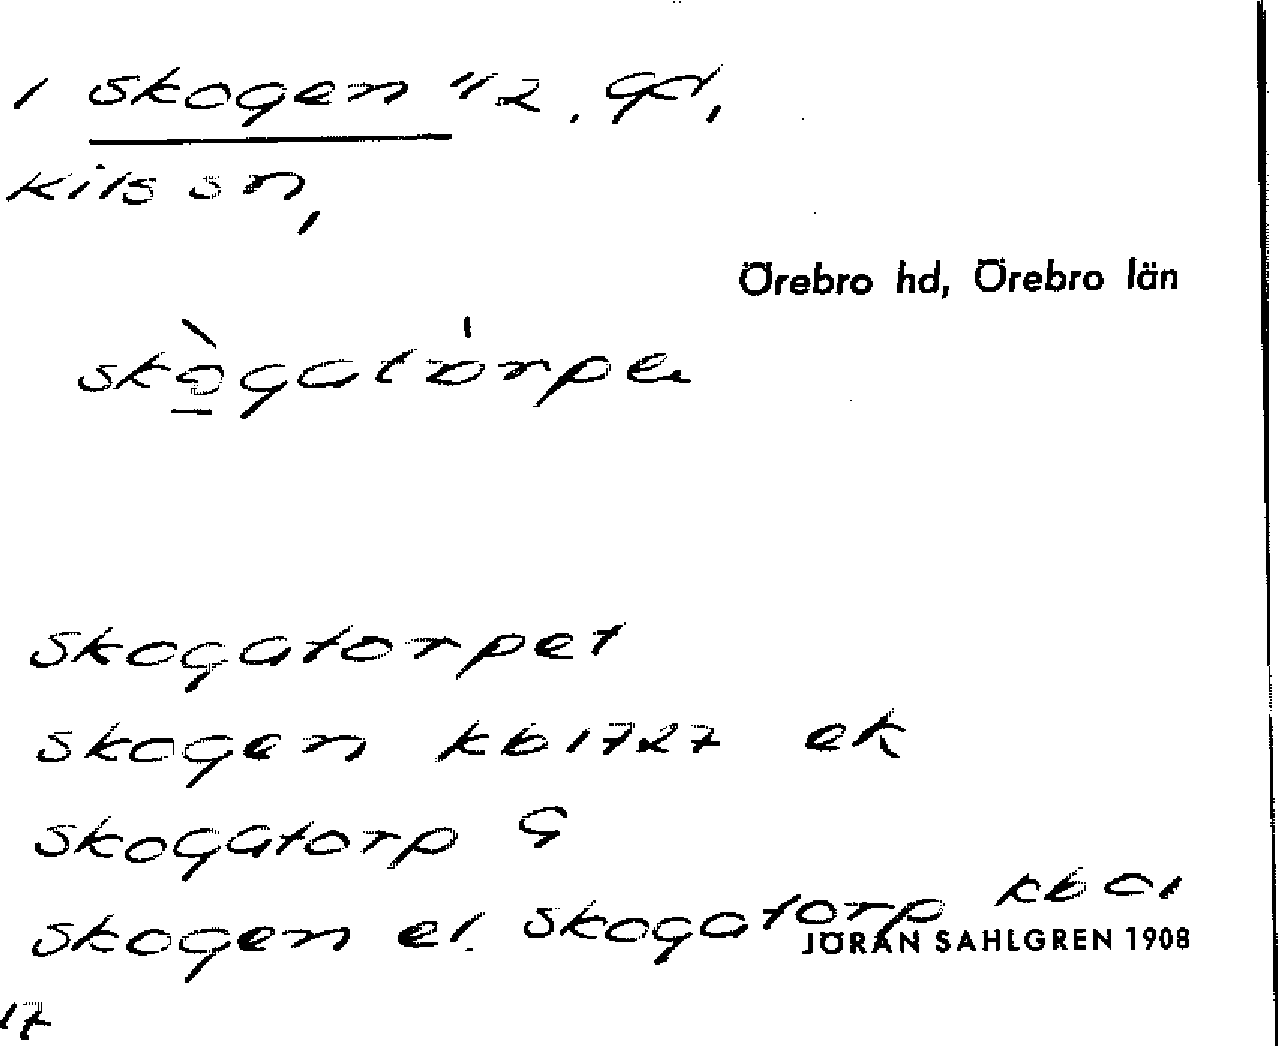 1 skogen 1/2. gd,
Kils sn,
Örebro hd, Örebro län
skògatórpe
skogatorpet
skogen kb 1727 ek
skogatorp G
skogen el. skogatorp kb CI
JÖRAN SAHLGREN 1908
17